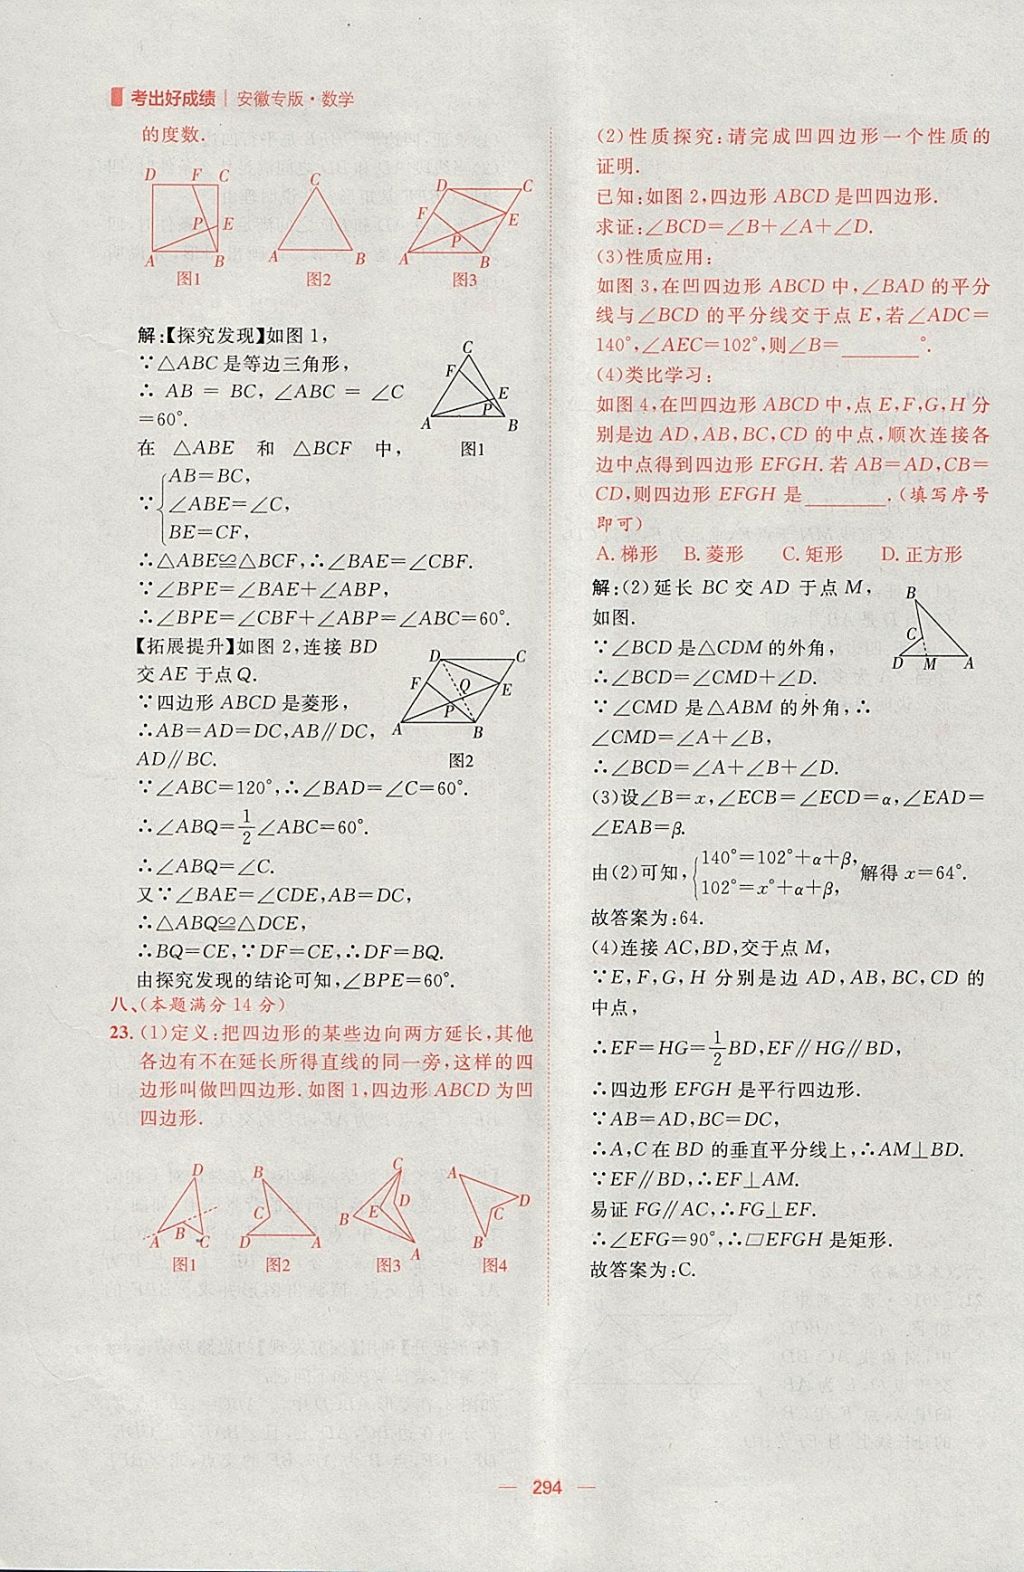 考出好成绩 | 安徽专版·数学
的度数.
D F C
P E
A B
图1
C
A B
图2
D C
F E
P
A B
图3
解:【探究发现】如图 1,
∵△ABC 是等边三角形,
∴ AB = BC, ∠ABC = ∠C
=60°.
在 △ABE 和 △BCF 中,
∵{AB=BC,
∠ABE=∠C,
BE=CF,
∴△ABE≌△BCF,∴∠BAE=∠CBF.
∵∠BPE=∠BAE+∠ABP,
∴∠BPE=∠CBF+∠ABP=∠ABC=60°.
C
F
E
P
A B
图1
【拓展提升】如图 2,连接 BD
交 AE 于点 Q.
∵四边形 ABCD 是菱形,
∴AB=AD=DC,AB∥DC,
AD∥BC.
D C
F Q E
P
A B
图2
∵∠ABC=120°,∴∠BAD=∠C=60°.
∴∠ABQ=1/2∠ABC=60°.
∴∠ABQ=∠C.
又∵∠BAE=∠CDE,AB=DC,
∴△ABQ≌△DCE,
∴BQ=CE,∵DF=CE,∴DF=BQ.
由探究发现的结论可知,∠BPE=60°.
八、(本题满分 14 分)
23. (1)定义:把四边形的某些边向两方延长,其他
各边有不在延长所得直线的同一旁,这样的四
边形叫做凹四边形.如图 1,四边形 ABCD 为凹
四边形.
D
A B C
图1
B
C
D A
图2
C
E D
B
A
图3
A
D
C
B
图4
(2)性质探究:请完成凹四边形一个性质的
证明.
已知:如图 2,四边形 ABCD 是凹四边形.
求证:∠BCD=∠B+∠A+∠D.
(3)性质应用:
如图 3,在凹四边形 ABCD 中,∠BAD 的平分
线与∠BCD 的平分线交于点 E,若∠ADC=
140°,∠AEC=102°,则∠B=________°.
(4)类比学习:
如图 4,在凹四边形 ABCD 中,点 E,F,G,H 分
别是边 AD,AB,BC,CD 的中点,顺次连接各
边中点得到四边形 EFGH.若 AB=AD,CB=
CD,则四边形 EFGH 是________.(填写序号
即可)
A. 梯形 B. 菱形 C. 矩形 D. 正方形
解:(2)延长 BC 交 AD 于点 M,
如图.
∵∠BCD 是△CDM 的外角,
∴∠BCD=∠CMD+∠D.
B
C
D M A
∵∠CMD 是△ABM 的外角,∴
∠CMD=∠A+∠B,
∴∠BCD=∠A+∠B+∠D.
(3)设∠B=x,∠ECB=∠ECD=α,∠EAD=
∠EAB=β.
由(2)可知,{140°=102°+α+β, 102°=x°+α+β, 解得 x=64°.
故答案为:64.
(4)连接 AC,BD,交于点 M,
∵E,F,G,H 分别是边 AD,AB,BC,CD 的
中点,
∴EF=HG=1/2BD,EF∥HG∥BD,
∴四边形 EFGH 是平行四边形.
∵AB=AD,BC=DC,
∴A,C 在 BD 的垂直平分线上,∴AM⊥BD.
∵EF∥BD,∴EF⊥AM.
易证 FG∥AC,∴FG⊥EF.
∴∠EFG=90°,∴▱EFGH 是矩形.
故答案为:C.
— 294 —